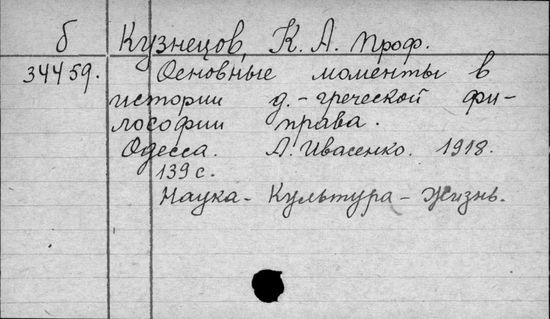 б Кузнецов, К. А. проф.
34459. Основные моменты в
истории д.-греческой фи-
лософии права.
Одесса. А. Ивасенко. 1918.
139 с.
Наука - Культура - Жизнь.